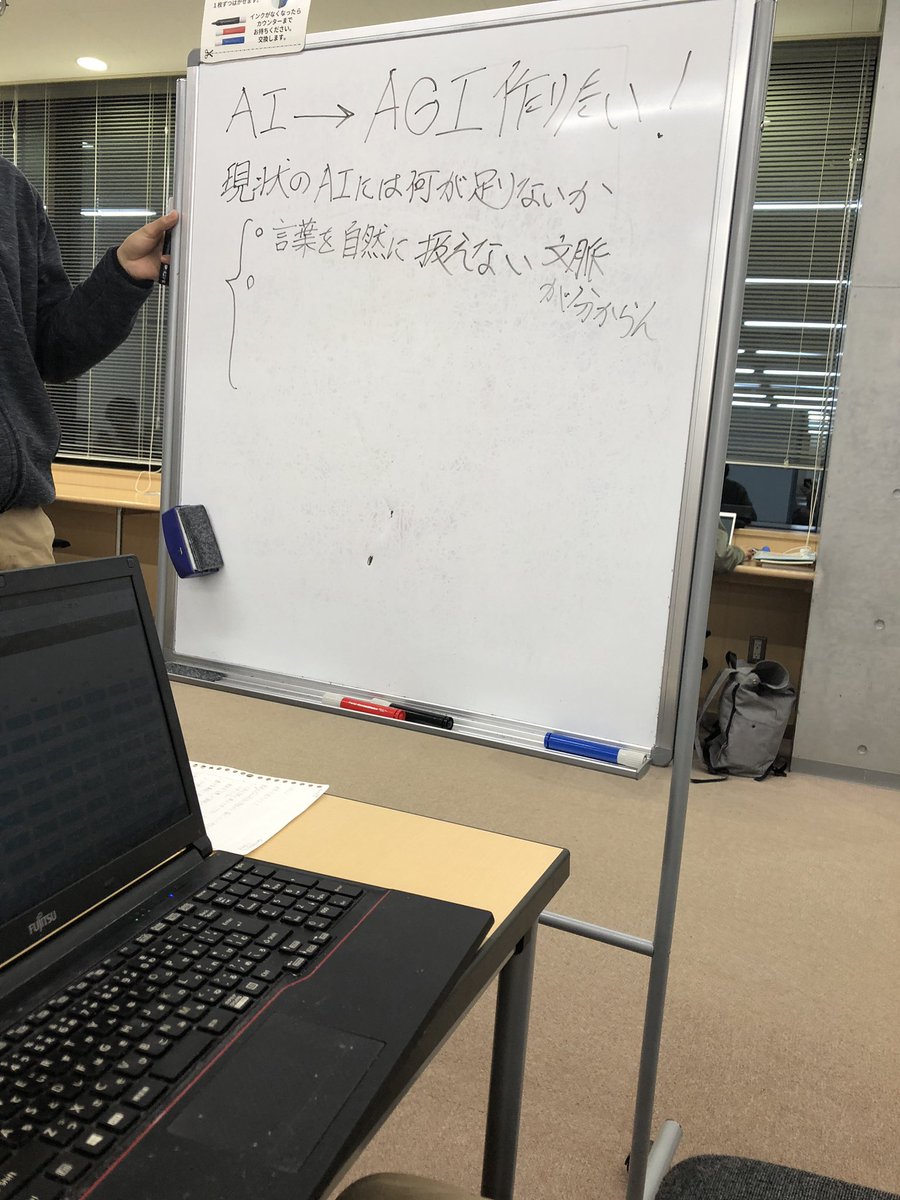 1枚ずつはがせます。
インクがなくなったら
カウンターまで
お持ちください。
交換します。
AI→AGI作りたい!
現状のAIには何が足りないか
言葉を自然に扱えない 文脈
が分からん
FUJITSU